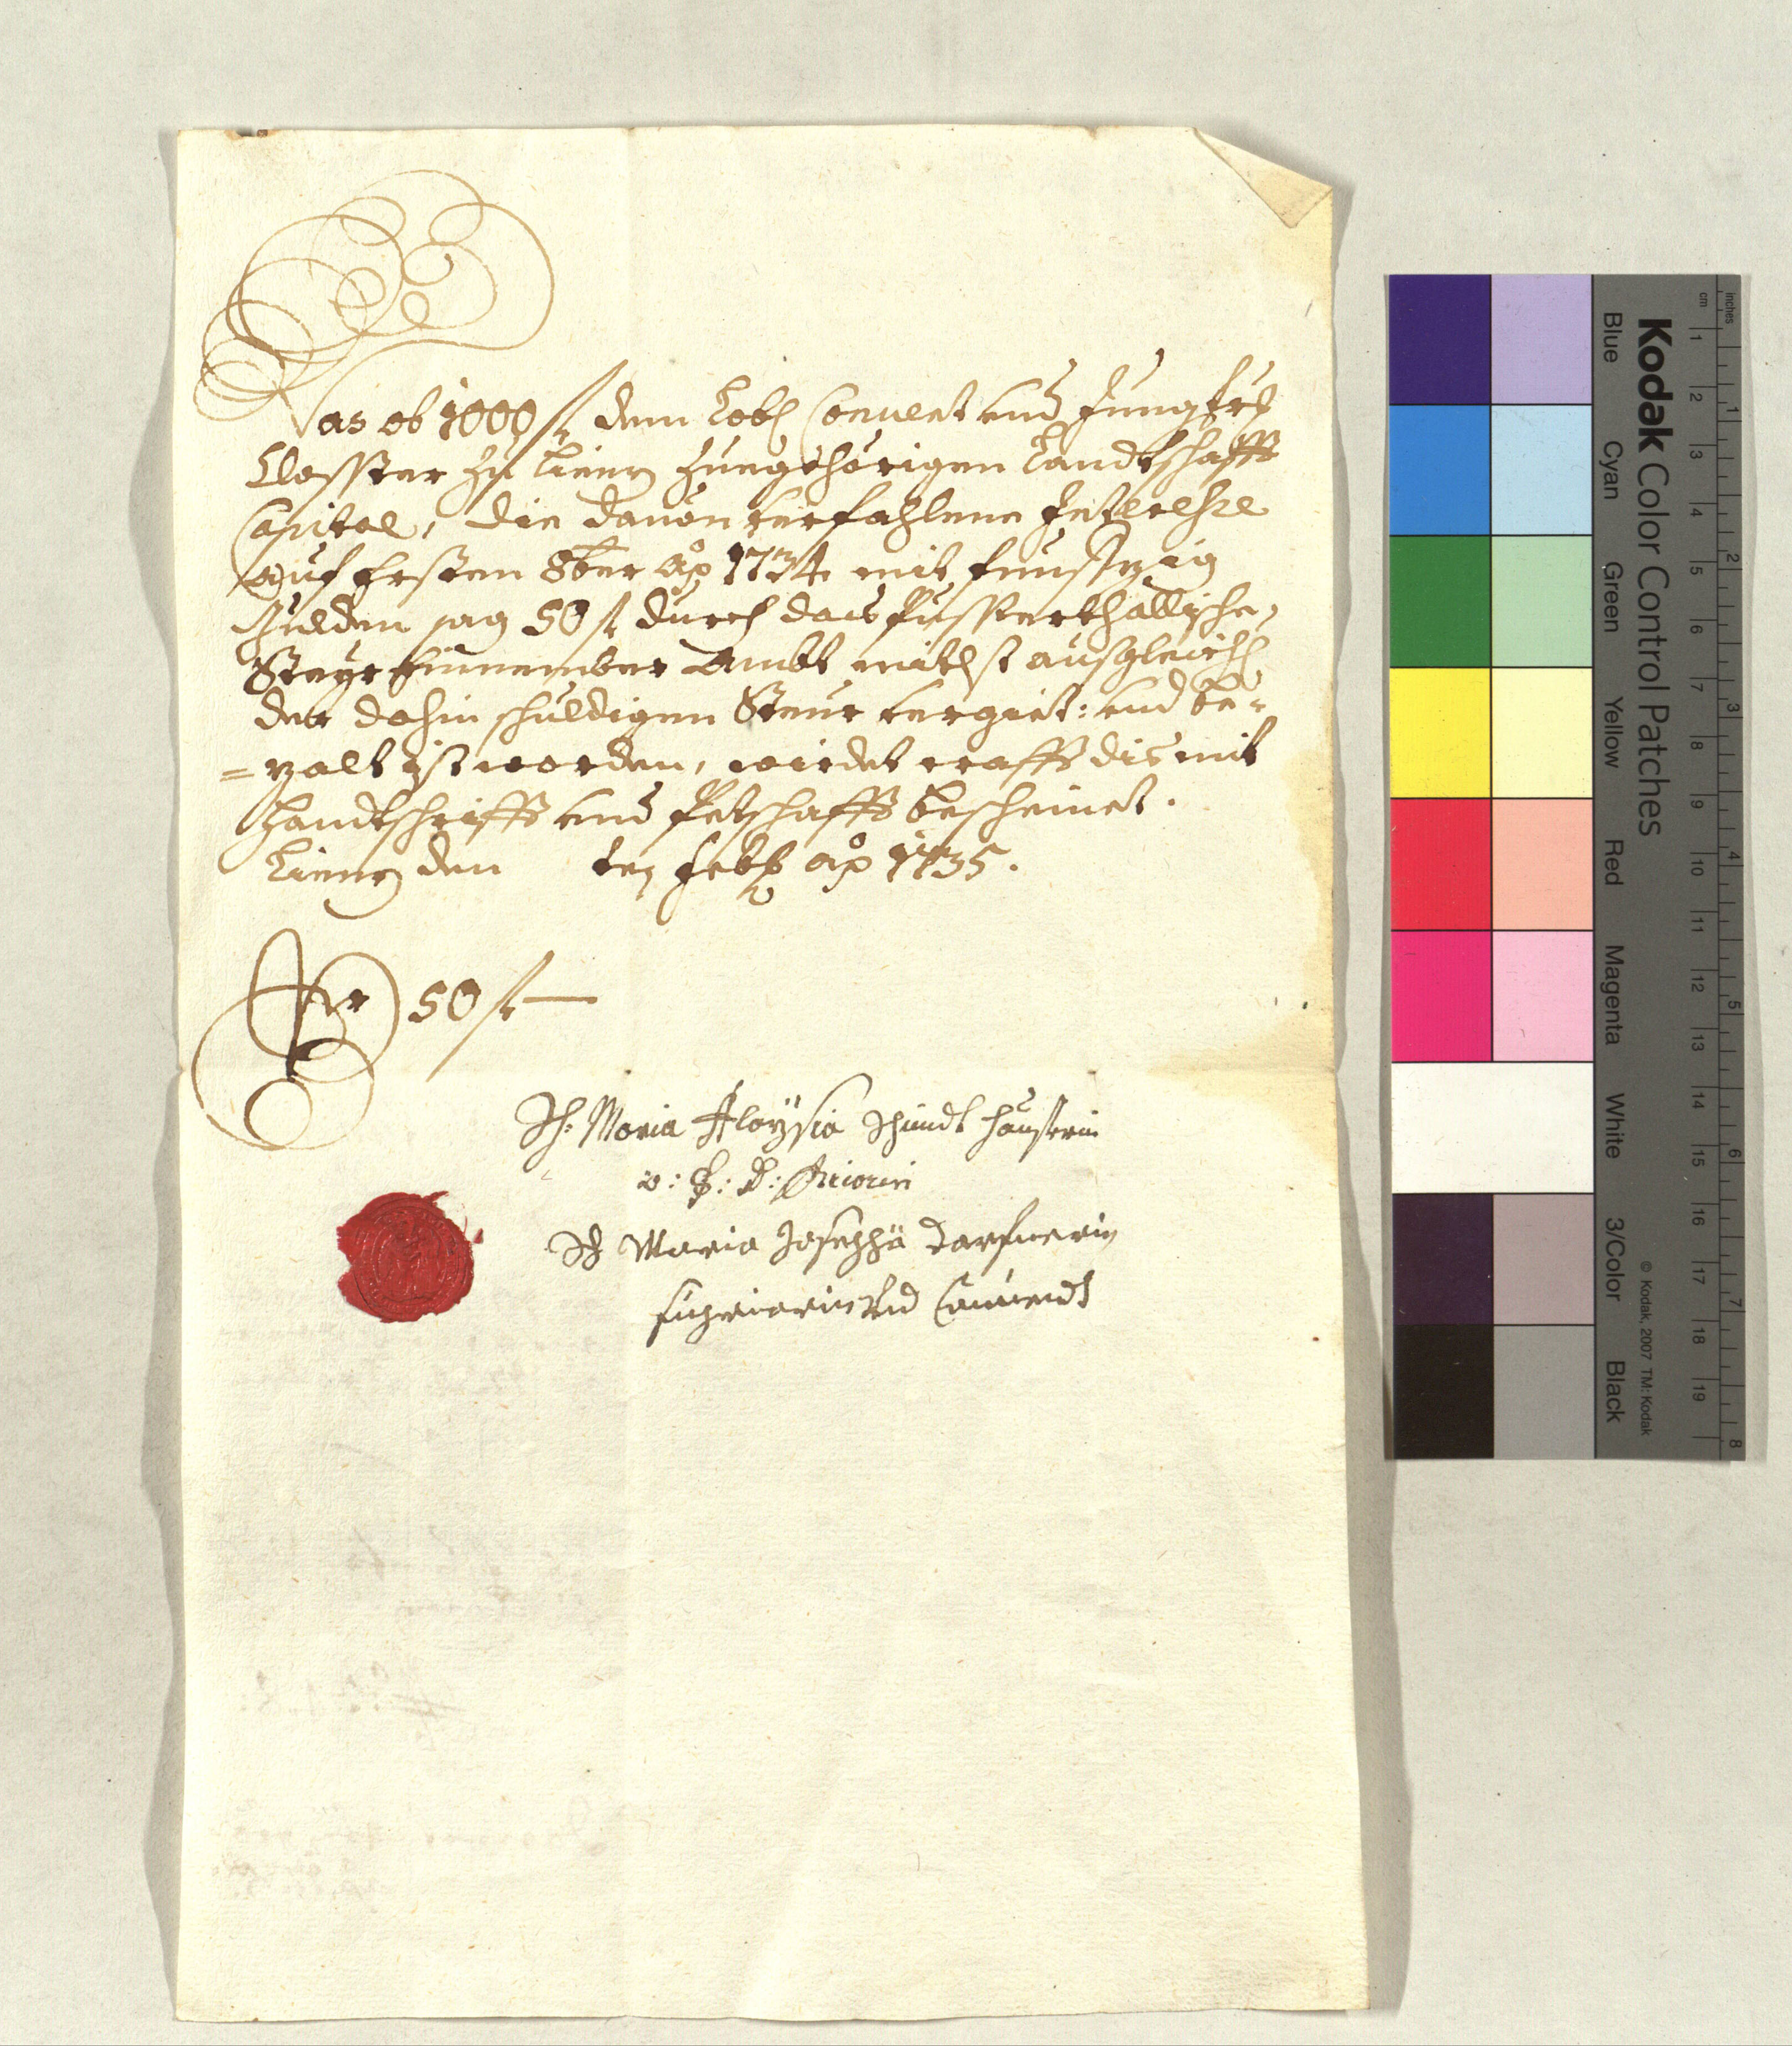 Das ob 1000 f. dem Lobl Convent und Jungfrl
Closster zu Lienz zuegehörigen Landtschaffts
Capital, die davon verfahlene Interesse
auf Ersten 8ber Ao 1734 mit funffzig
Gulden sag 50 f durch das Pussterthallische,
Steyr Einnember Ambt mitlst ausgleichl
der dahin schuldigen Steur vergiet: und be-
=zalt ist worden, wirdet crafft dis mit
Handtschrifft und Petschafft bescheinet.
Lienz den ten Feb: ao 1735.
Per 50 f
Sr: Maria Aloÿsia Schmidt
o: P: D: Priorin
Sr Maria Josepha
suppriorin und Convendt
Kodak Color Control Patches
Blue Cyan Green Yellow Red Magenta White 3/Color Black
© Kodak, 2007 TM: Kodak
cm 1 2 3 4 5 6 7 8 9 10 11 12 13 14 15 16 17 18 19
inches 1 2 3 4 5 6 7 8